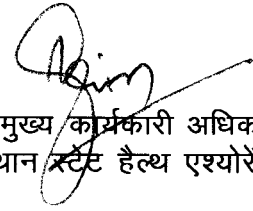 मुख्य कार्यकारी अधिक
थान स्टेट हैल्थ एश्योरें